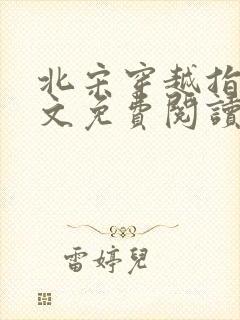 北宋穿越指
文免費閱讀
雷婷兒